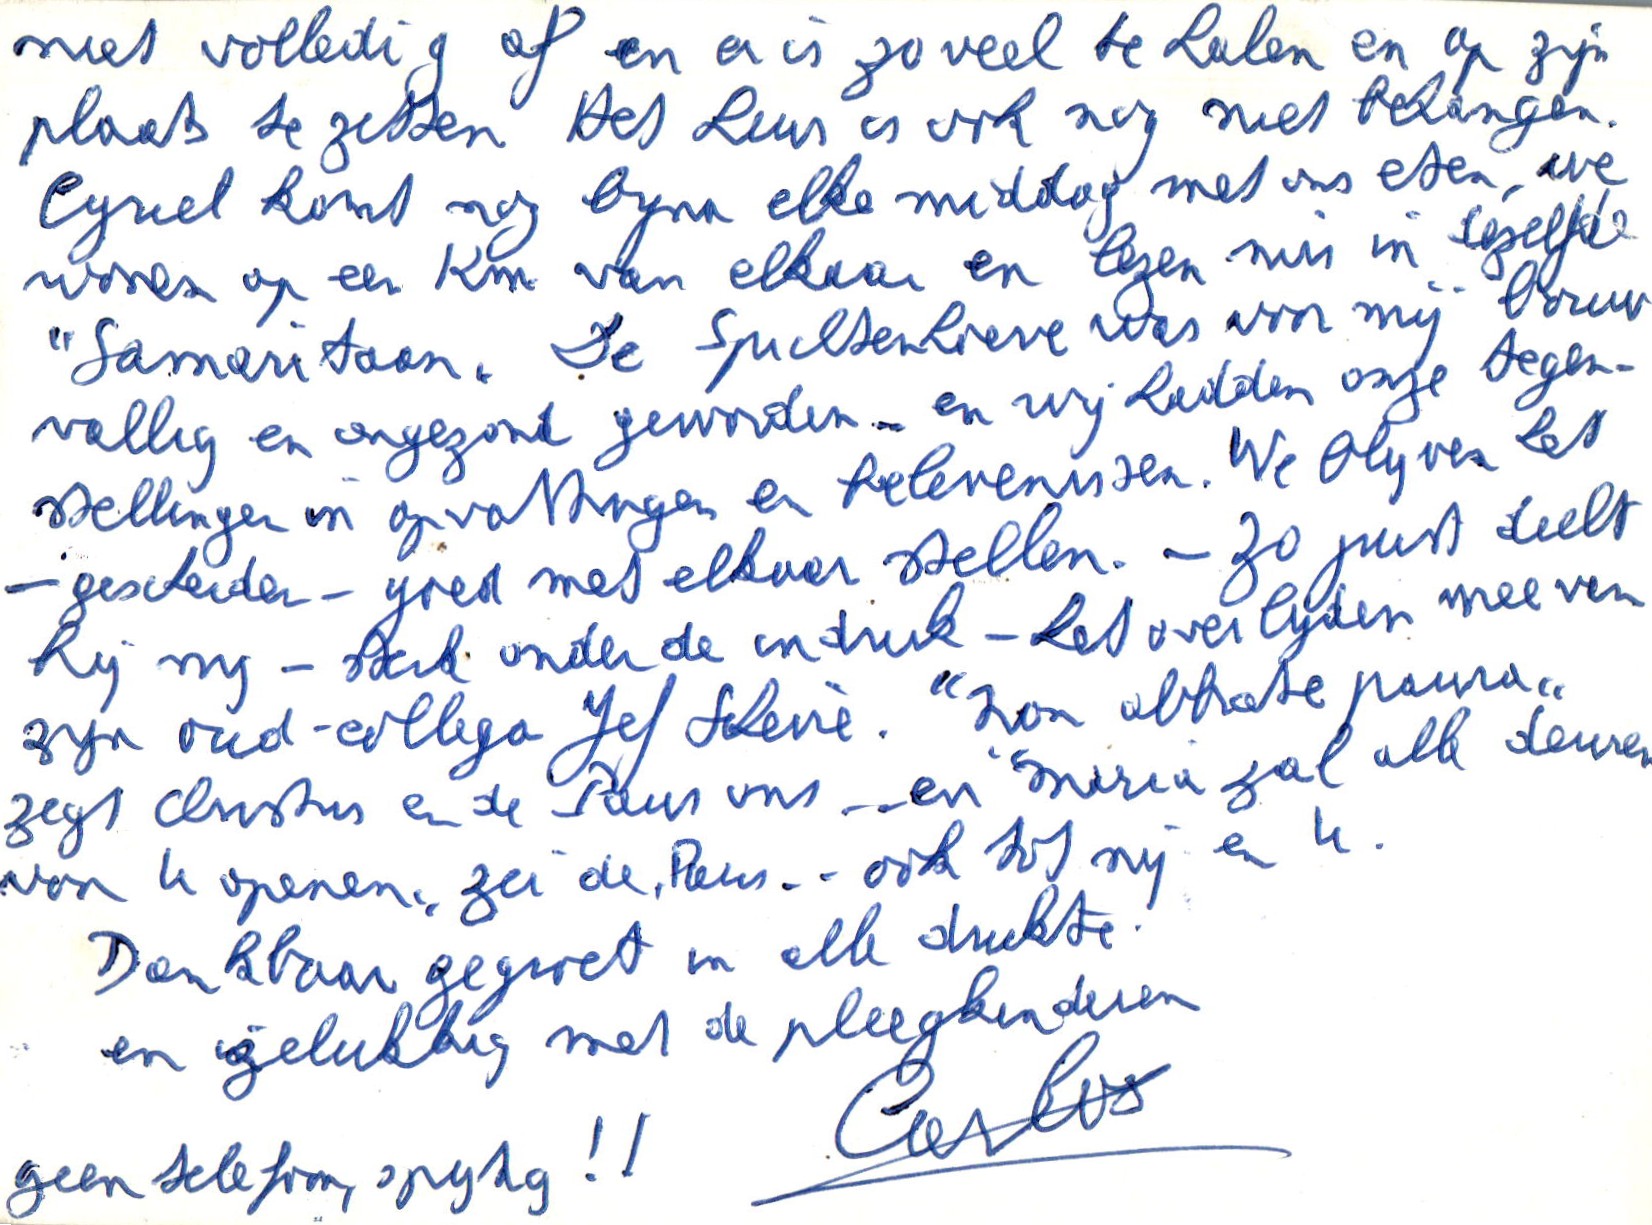 niet volledig af en er is zoveel te halen en op zijn
plaats te zetten Het huis is ook nog niet behangen.
Cyriel komt nog byna elke middag met ons eten, we
wonen op een Km van elkaar en lezen mis in dezelfde
"Samaritaan„ De Spicttenhoeve was voor mij bouw
vallig en ongezond geworden - en wij hadden onze tegen-
stellingen in opvattingen en belevenissen. We blyven het
- gescheiden - goed met elkaar stellen. - Zo juist deelt
hij my - sterk onder de indruk - het overlijden mee van
zyn oud-collega Jef "Non abbiate paura„
zegt Christus en de Paus ons - en "Maria zal alle deuren
voor U openen„ zei de Paus.. ook tot mij en U.
Dankbaar gegroet in alle drukte.
en gelukkig met de pleegkinderen
Carlos
geen telefoon, spytig !!